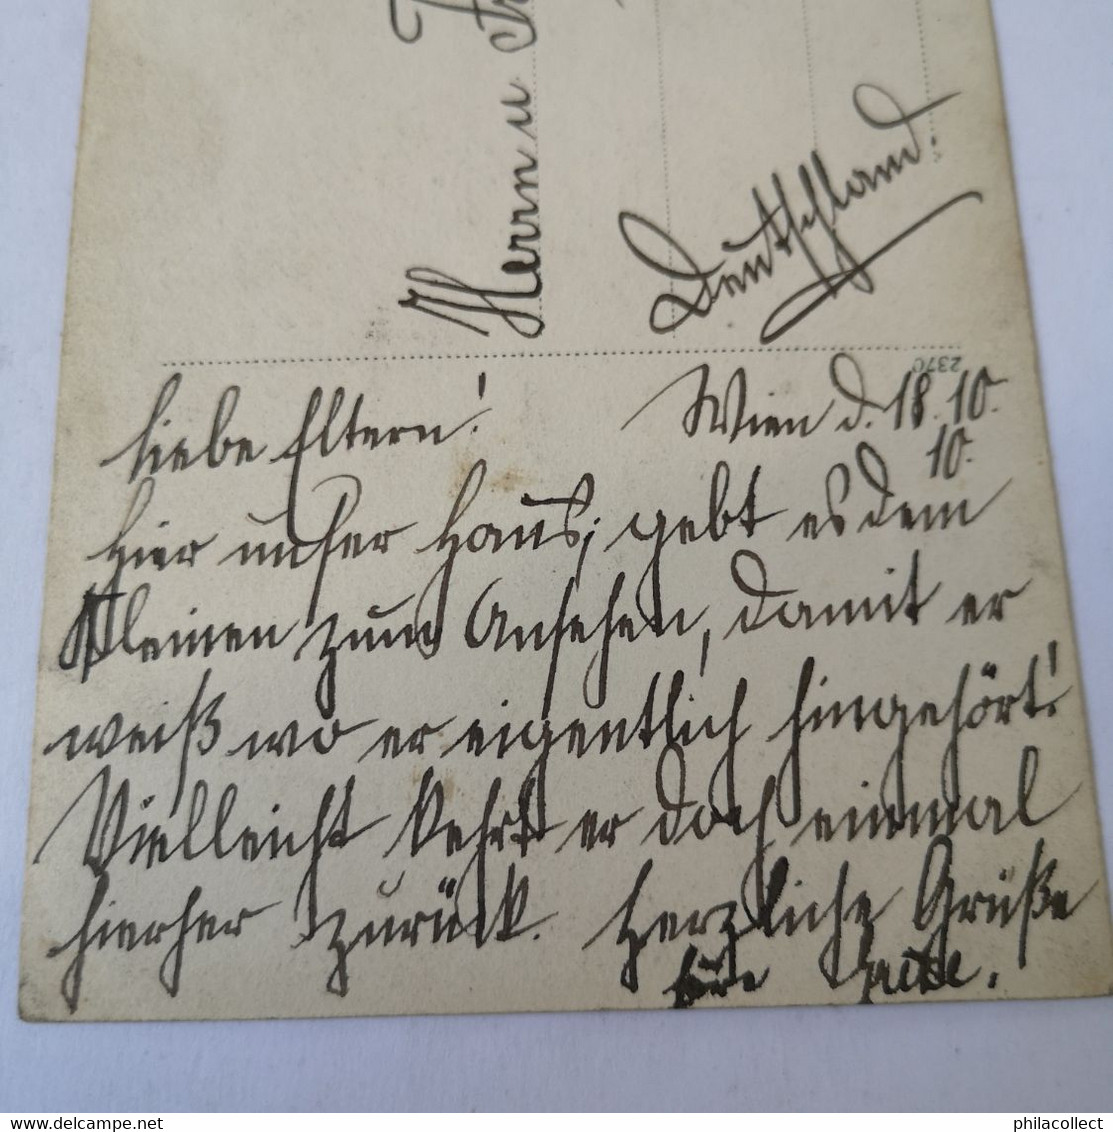 Herrn u
Deutschland.
2370
Liebe Eltern! Wien d. 18.10.
10.
Hier unser Haus, gebt es dem
Kleinen zum Ansehen, damit er
weiß wo er eigentlich hingehört!
Vielleicht kehrt er doch einmal
hierher zurück. Herzliche Grüße
Eure
philacollect